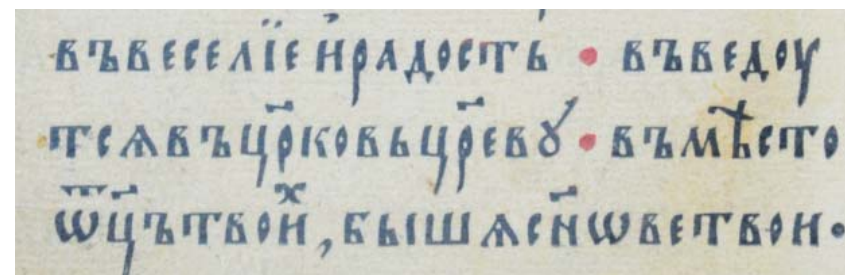 въвеселїеи҆радость · въведоу
тсѧвъцр҃ковьцр҃евꙋ · въмѣсто
ѿц҃ътвои҆ⷯ, бышѧсн҃ѡветвои ·